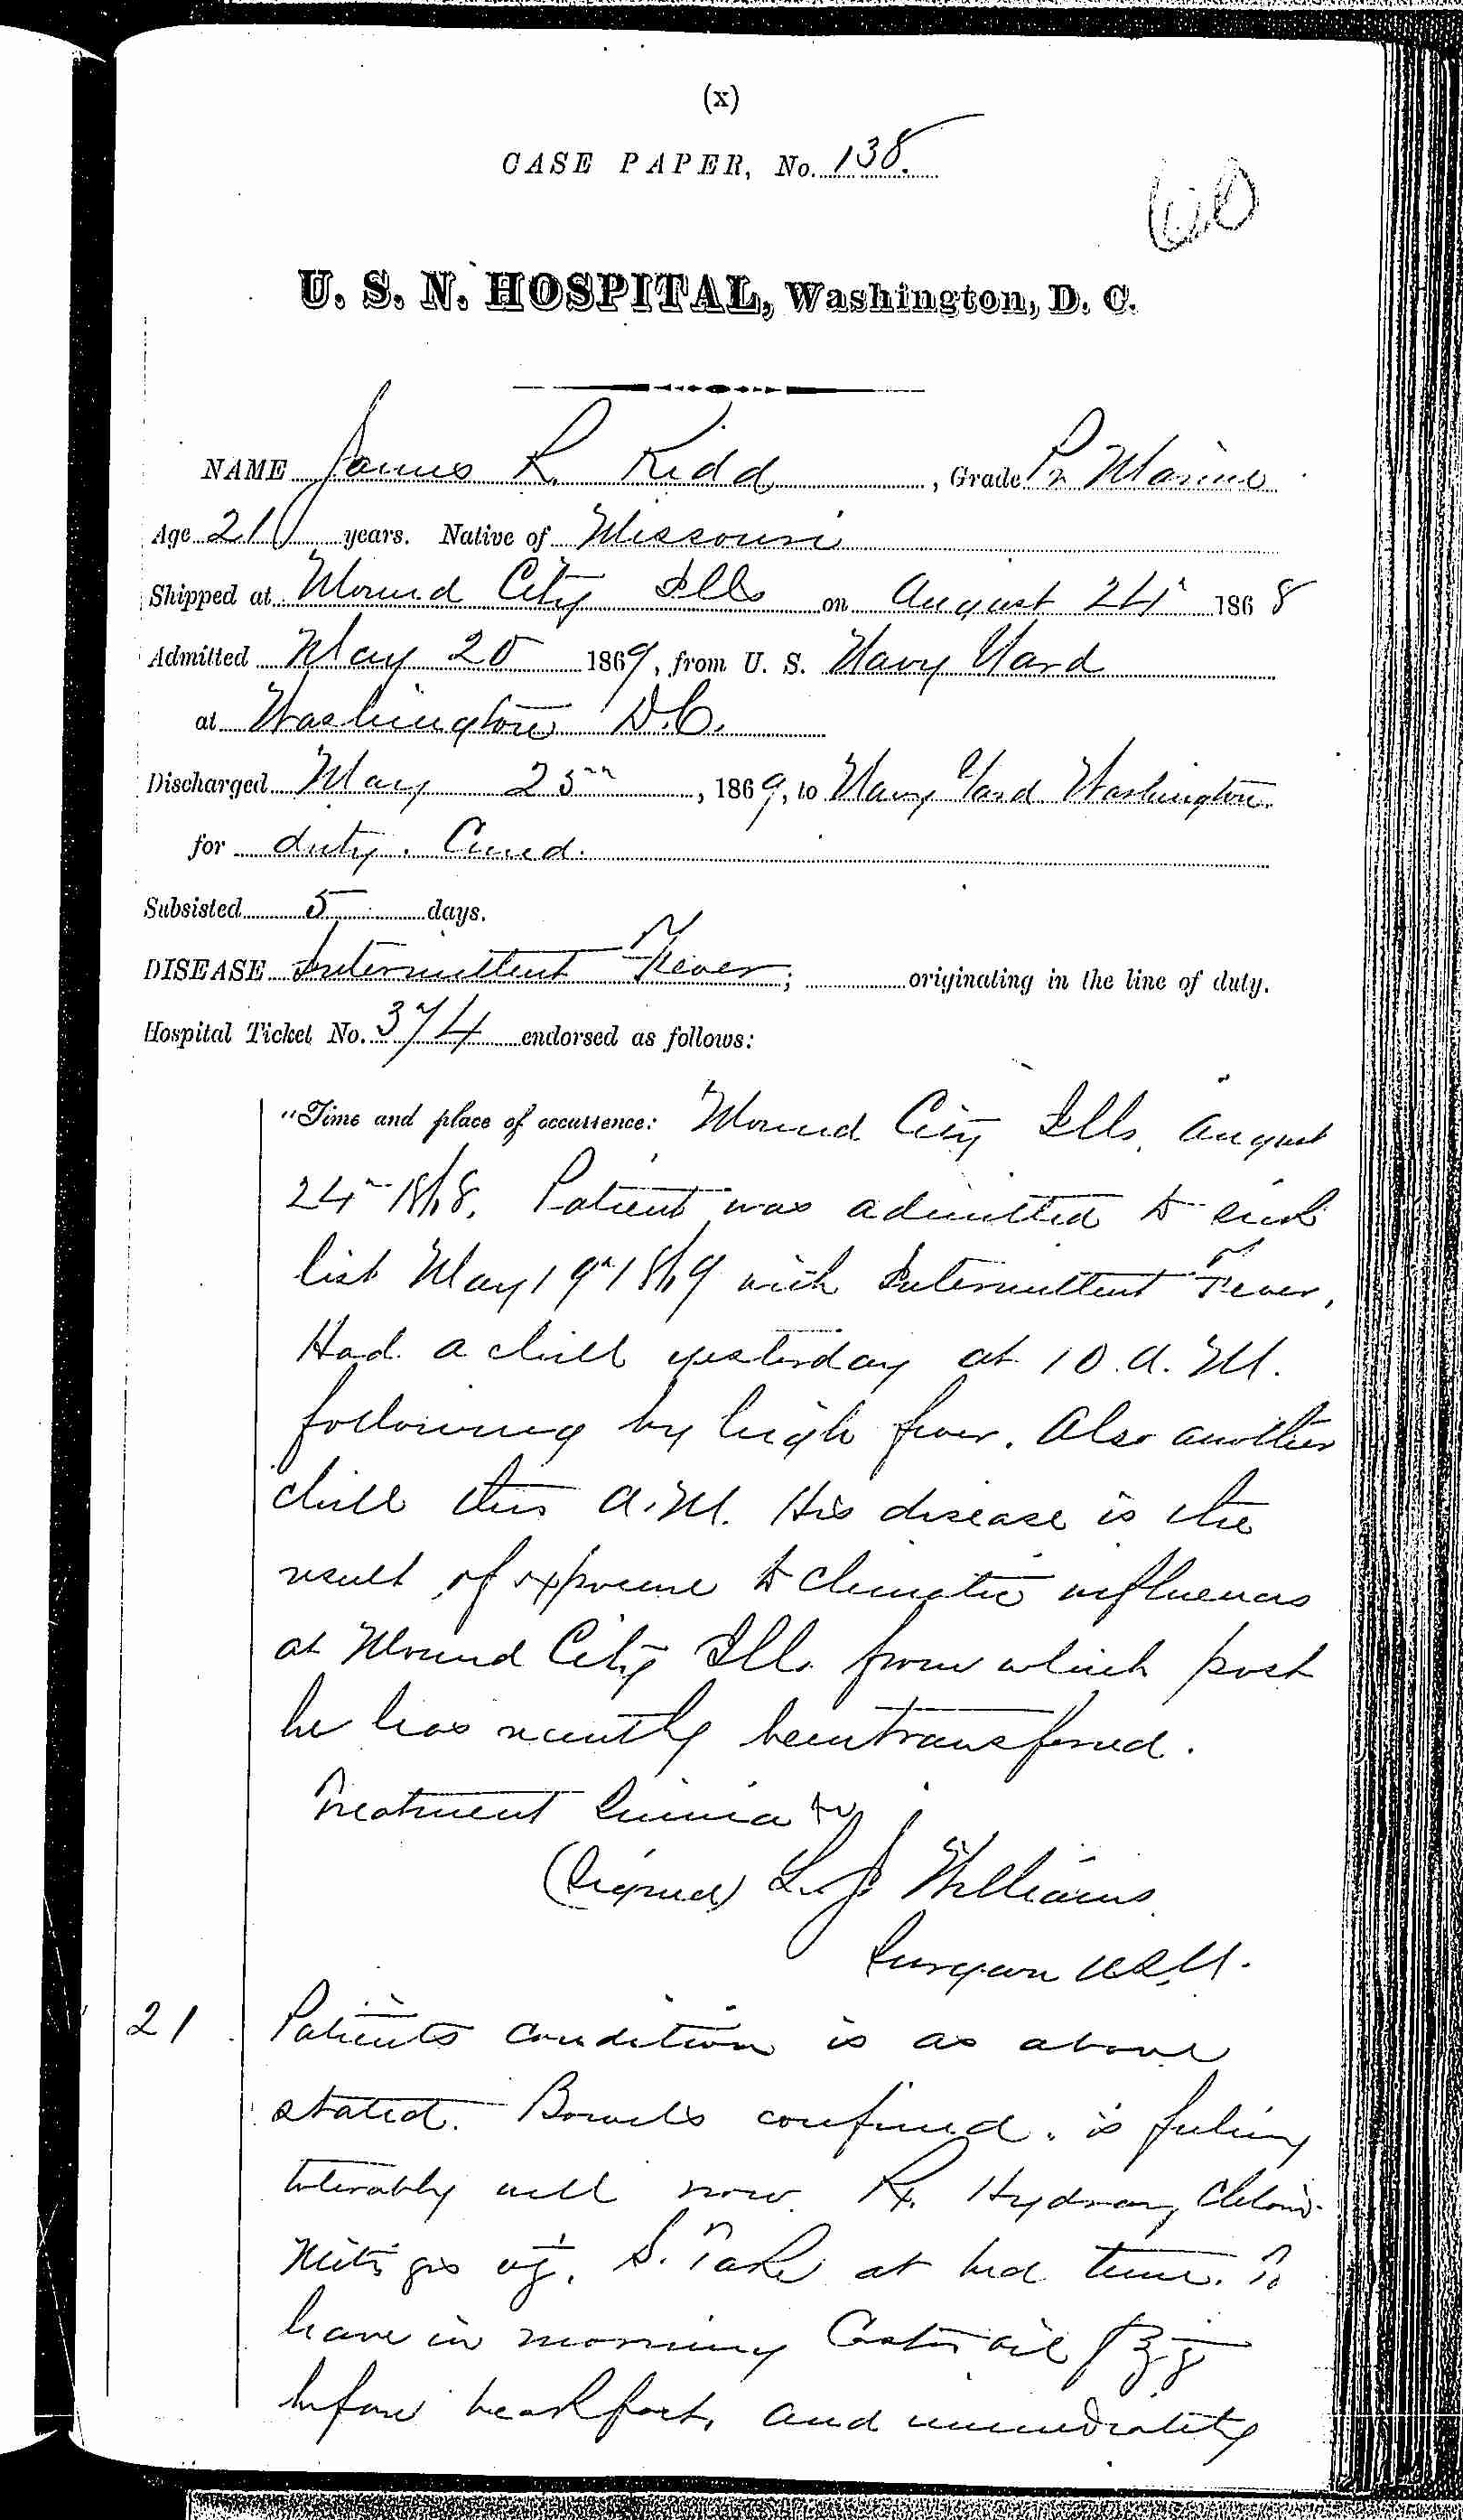 (x)
CASE PAPER, No. 138.
60
U. S. N. HOSPITAL, Washington, D. C.
NAME James R. Kidd, Grade Pr Marine
Age 21 years. Native of Missouri
Shipped at Mound City Ills on August 24" 1868
Admitted May 20 1869, from U. S. Navy Yard
at Washington D.C.
Discharged May 25th, 1869, to Navy Yard Washington.
for duty. Cured.
Subsisted 5 days.
DISEASE Intermittent Fever; originating in the line of duty.
Hospital Ticket No. 374 endorsed as follows:
"Time and place of occurrence: Mound City Ills. August
24" 1868. Patient was admitted to sick
list May 19" 1869 with Intermittent Fever,
Had a chill yesterday at 10 A.M.
following by high fever. Also another
chill this A.M. His disease is the
result of exposure to climatic influences
at Mound City Ills. from which post
he has recently been transferred.
Treatment Quinia
(Signed) L. J. Williams
Surgeon U.S.N.
21 Patients condition is as above
stated. Bowels confined. is feeling
tolerably well now. Rx. Hydrarg Chlorid.
Mitis grs vj. S. Take at bed time. To
have in morning Castor oil
before breakfast, and immediately